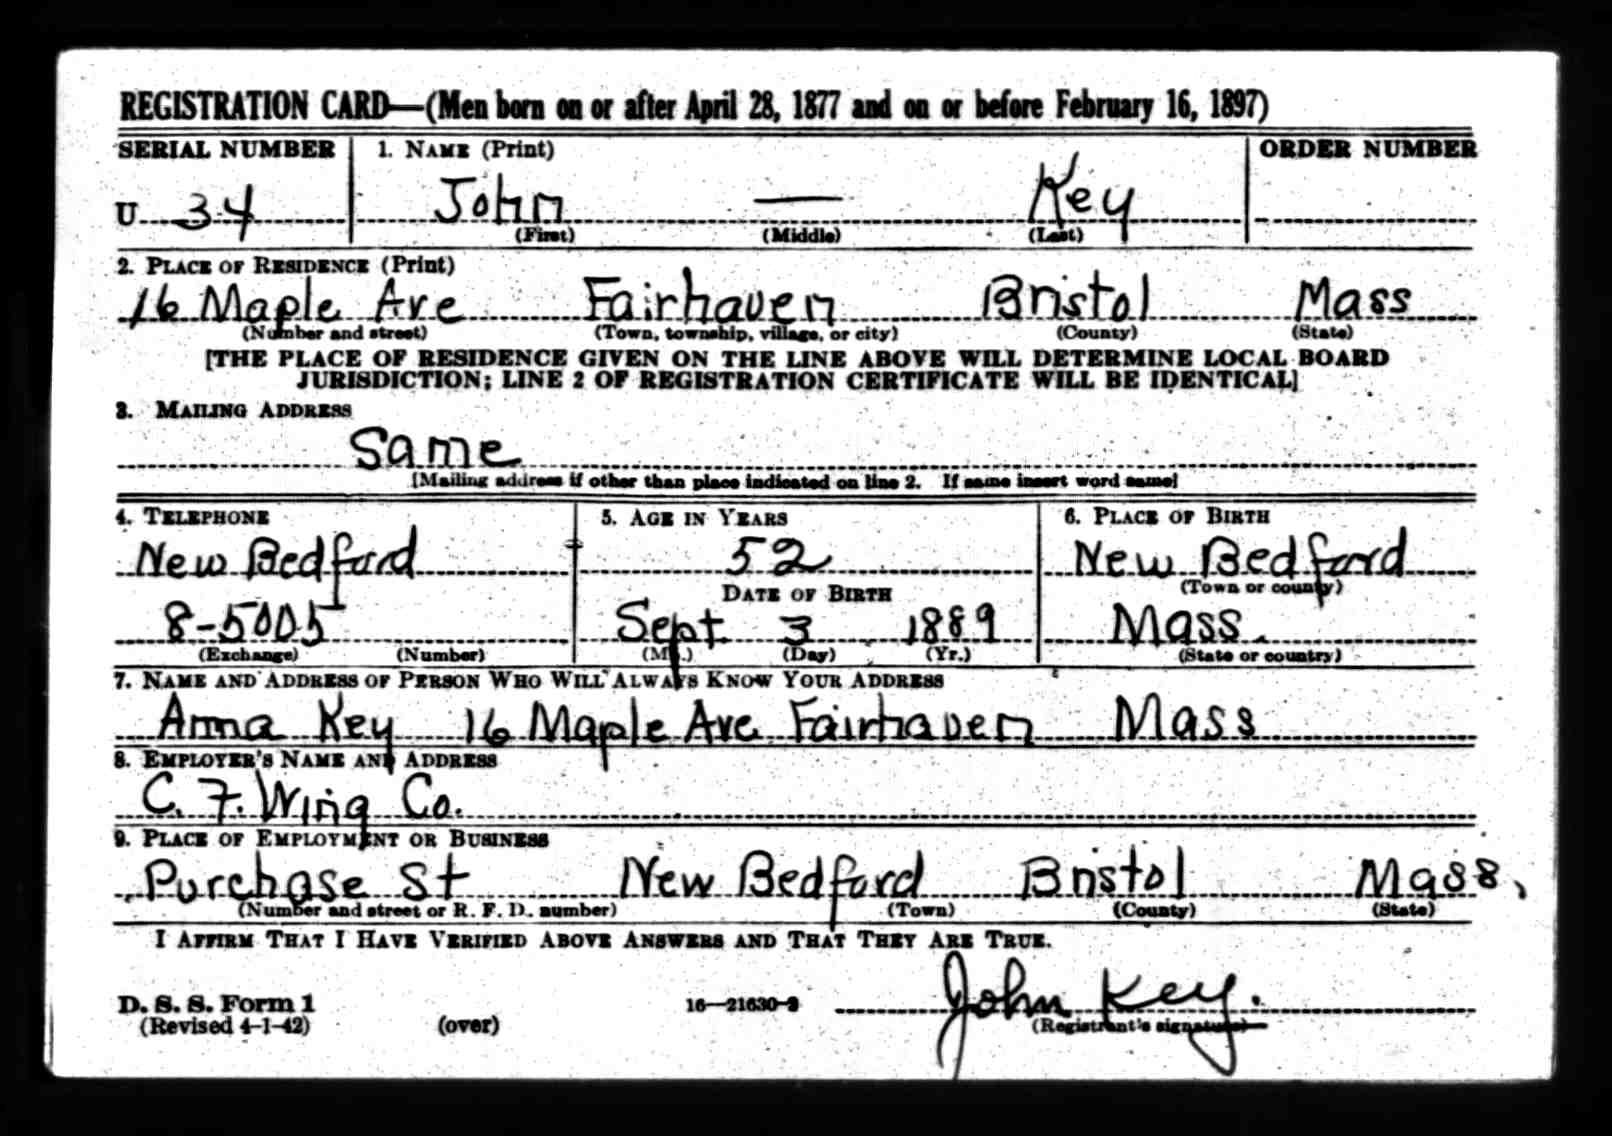 REGISTRATION CARD—(Men born on or after April 28, 1877 and on or before February 16, 1897)
SERIAL NUMBER 1. NAME (Print) ORDER NUMBER
U 34 John — Key
(First) (Middle) (Last)
2. PLACE OF RESIDENCE (Print)
16 Maple Ave Fairhaven Bristol Mass
(Number and street) (Town, township, village, or city) (County) (State)
[THE PLACE OF RESIDENCE GIVEN ON THE LINE ABOVE WILL DETERMINE LOCAL BOARD
JURISDICTION; LINE 2 OF REGISTRATION CERTIFICATE WILL BE IDENTICAL]
3. MAILING ADDRESS
Same
[Mailing address if other than place indicated on line 2. If same insert word same]
4. TELEPHONE 5. AGE IN YEARS 6. PLACE OF BIRTH
New Bedford 52 New Bedford
DATE OF BIRTH (Town or county)
8-5005 Sept 3 1889 Mass.
(Exchange) (Number) (Mo.) (Day) (Yr.) (State or country)
7. NAME AND ADDRESS OF PERSON WHO WILL ALWAYS KNOW YOUR ADDRESS
Anna Key 16 Maple Ave Fairhaven Mass
8. EMPLOYER'S NAME AND ADDRESS
C. F. Wing Co.
9. PLACE OF EMPLOYMENT OR BUSINESS
Purchase St New Bedford Bristol Mass.
(Number and street or R. F. D. number) (Town) (County) (State)
I AFFIRM THAT I HAVE VERIFIED ABOVE ANSWERS AND THAT THEY ARE TRUE.
John Key.
D. S. S. Form 1 16—21630-2
(Revised 4-1-42) (over) (Registrant's signature)